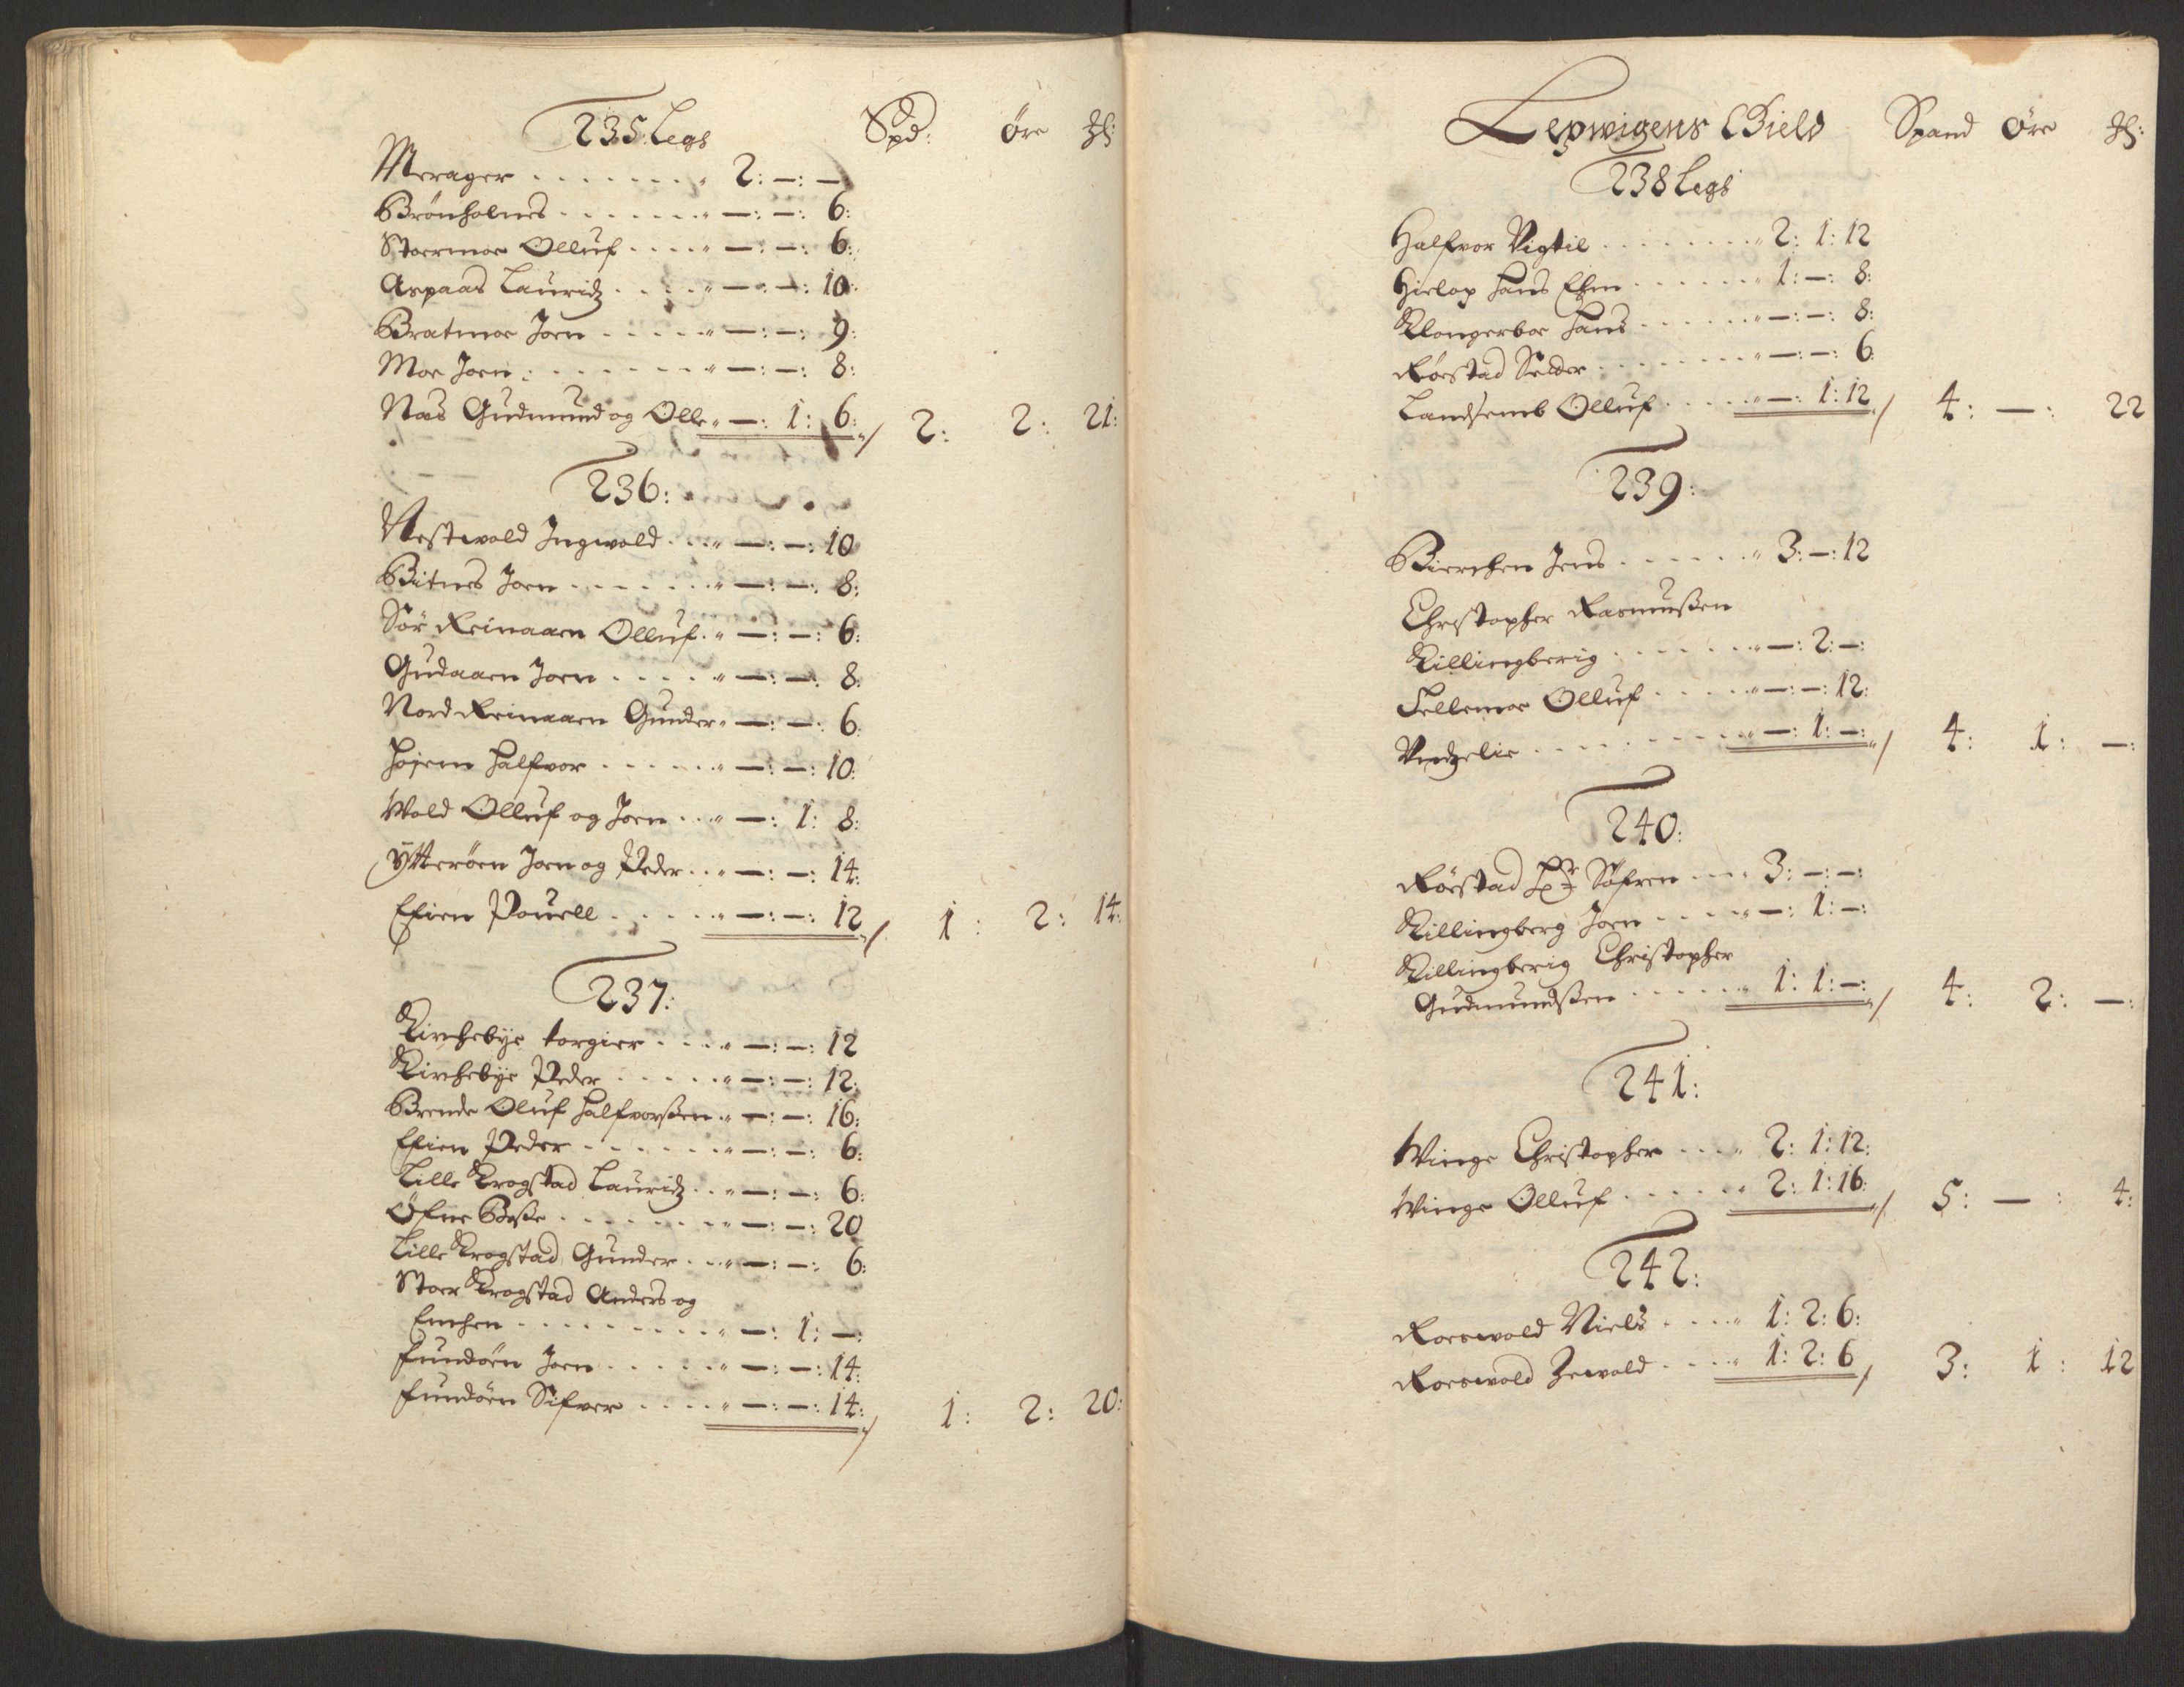 235 Legs Spd: Øre
Merager . . . . . . . " 2: —: —
Brønholmes . . . . . . " —: —: 6:
Stoermoe Olluf . . . . " —: —: 6:
Aspaas Lauridz . . . . " —: —: 10:
Bratmoe Joen . . . . . " —: —: 9:
Moe Joen . . . . . . . " —: —: 8:
Nas Gudmund og Olle " —: 1: 6: / 2: 2: 21:
236:
Westwold Ingwold . . . " —: —: 10
Bitnes Joen . . . . . . " —: —: 8:
Sør Reinaaen Olluf . " —: —: 6:
Gudaaen Joen . . . . . " —: —: 8:
Nord Reinaaen Gunder " —: —: 6:
Høyem Halfvor . . . . . " —: —: 10:
Wold Olluf og Joen . . " —: 1: 8:
Ytterøen Joen og Peder . . " —: —: 14:
Efien Pouell . . . . . . " —: —: 12 / 1: 2: 14:
237:
Kirchebye torgier . . . . " —: —: 12
Kirchebye Peder . . . . . " —: —: 12:
Brende Oluf Halfvorßen . " —: —: 16:
Efien Peder . . . . . . " —: —: 6:
Lille Krogstad Lauridz . . " —: —: 6:
Øfne Boße . . . . . . . . " —: —: 20
Lille Krogstad Gunder . . " —: —: 6:
Stoer Krogstad Anders og
Enchen . . . . . . . . . " —: 1: —:
fundøen Joen . . . . . " —: —: 14:
fundøen Sifver . . . . " —: —: 14: / 1: 2: 20:
Lepwigens Gield Spand Øre
238 Legs
Halfvor Vigtil . . . . . . . " 2: 1: 12
Hielop Hans Efien . . . . . . " 1: —: 8:
Klongerboe Hans . . . . . . " —: —: 8:
Røestad Peder . . . . . . . " —: —: 6:
Landsemb Olluf . . . . . " —: 1: 12 / 4: —: 22
239:
Bierchen Jens . . . . . . " 3: —: 12
Christopher Rasmußen
Killingberig . . . . . . " —: 2: —:
Fellemoe Olluf . . . . . " —: —: 12:
Vudzelie . . . . . . . . . " —: 1: —: / 4: 1: —:
240:
Røestad Hr Søfren . . . . 3: —: —:
Killingberg Joen . . . . " —: 1: —:
Killingberig Christopher
Gudmundßen . . . . . . " 1: 1: —: / 4: 2: —:
241:
Winge Christopher . . . . " 2: 1: 12:
Winge Olluf . . . . . . " 2: 1: 16: / 5: —: 4:
242:
Roeswold Niels . . . . " 1: 2: 6:
Roeswold Zewold . . . . " 1: 2: 6 / 3: 1: 12